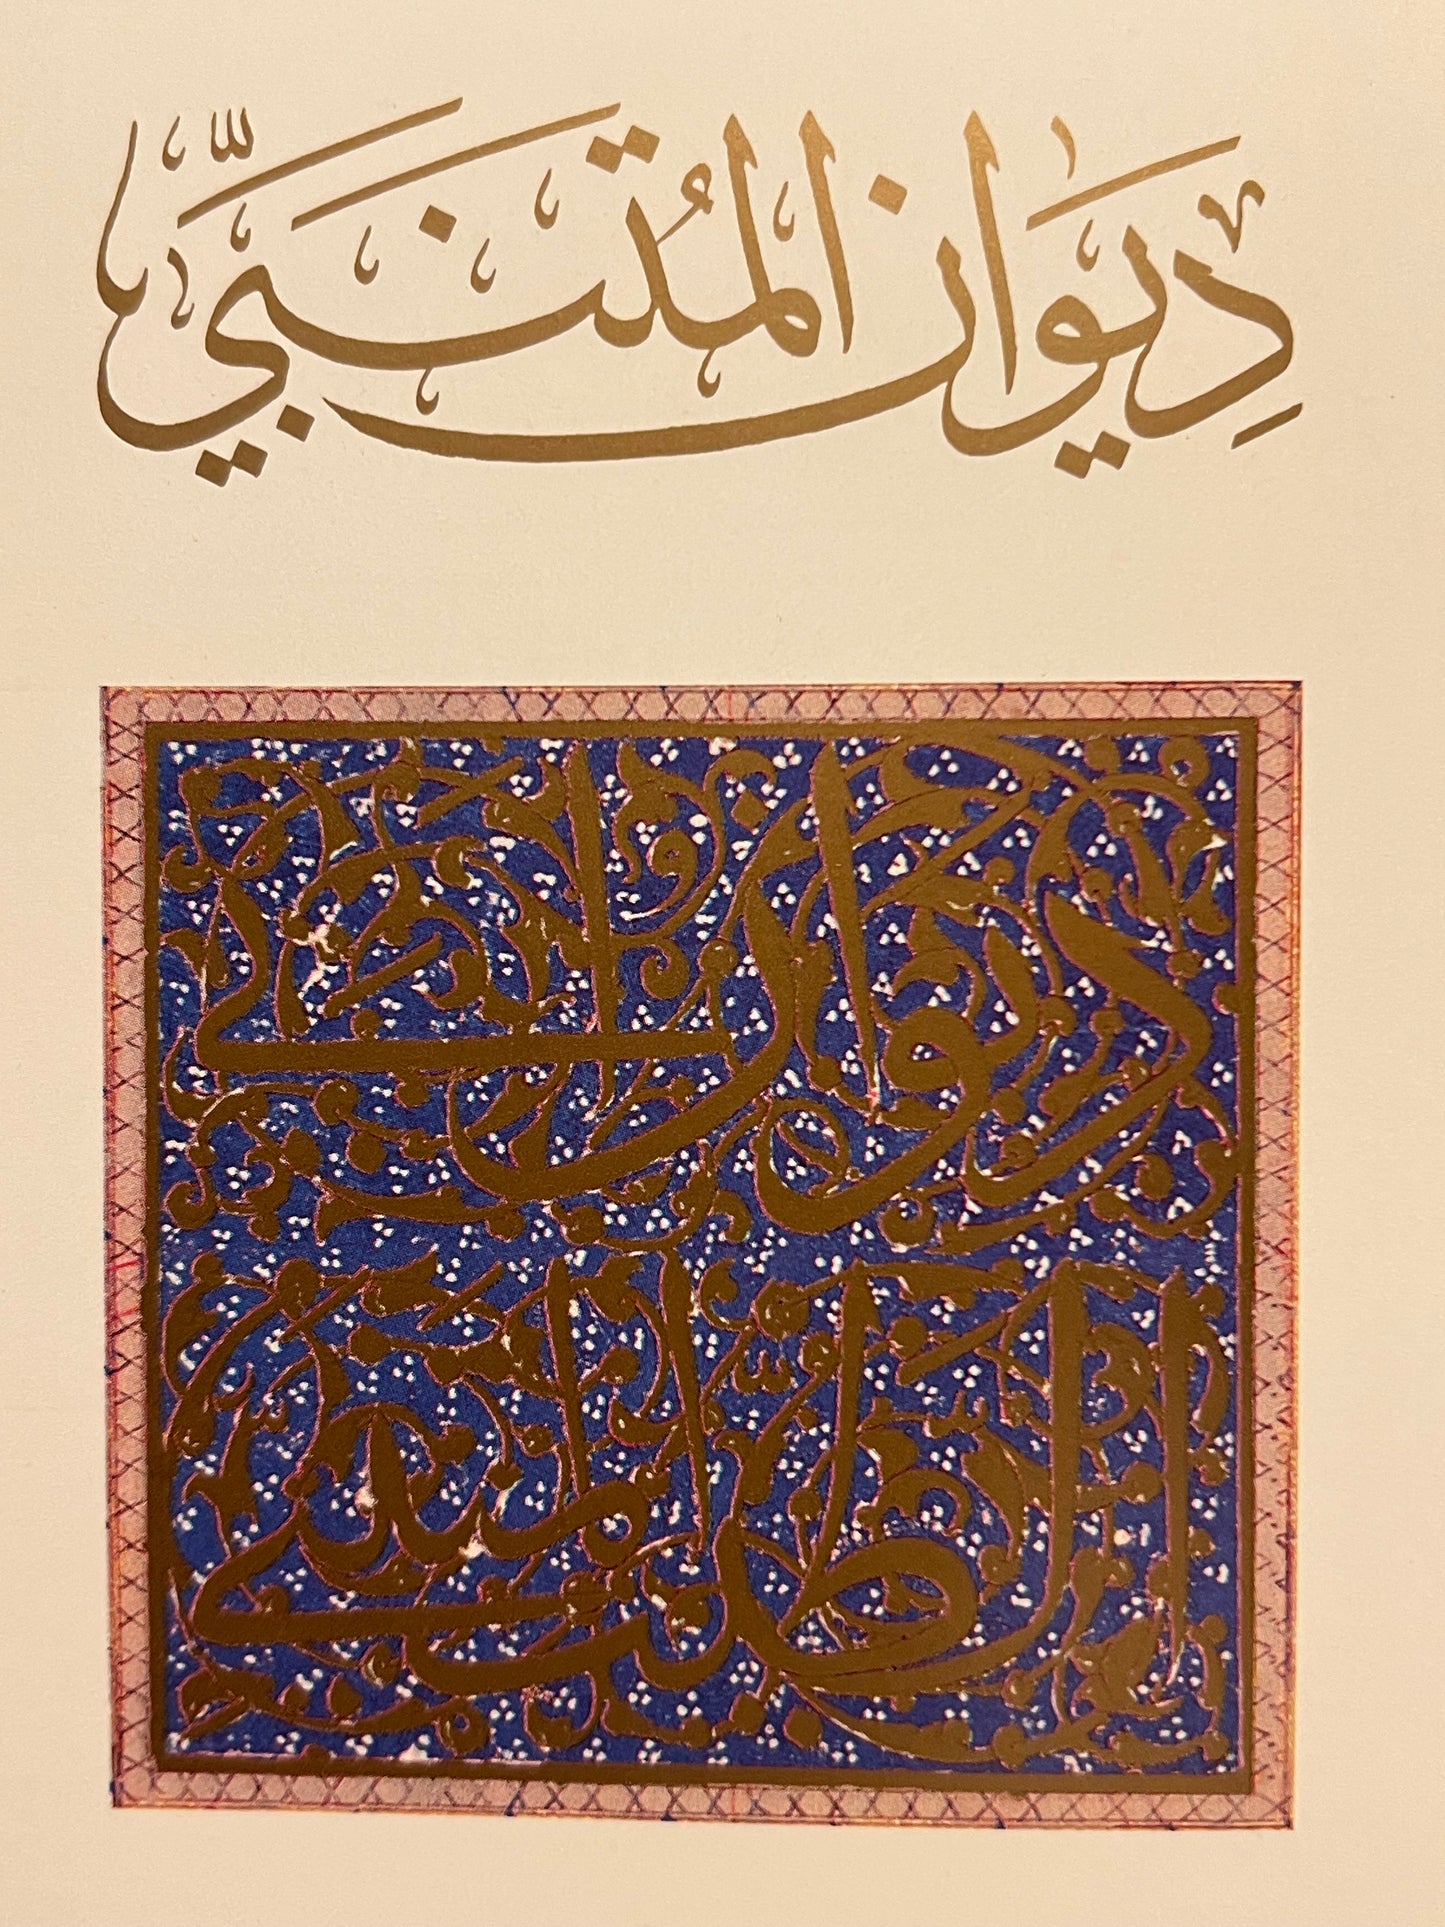 دِيوَان المُتنَبِّي
ديوان أبي
الطيب المتنبي